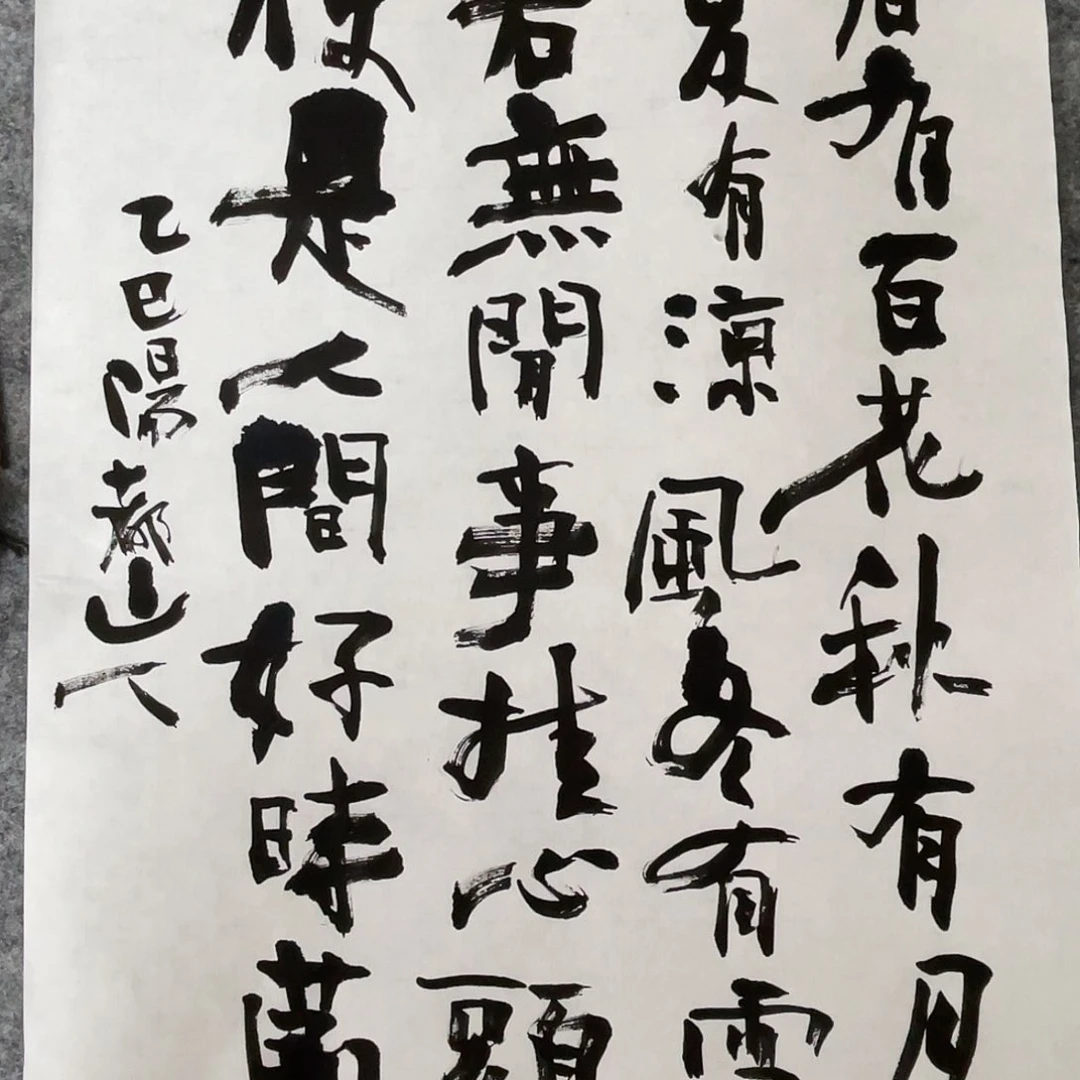 春有百花秋有月
夏有涼風冬有雪
若無閒事挂心頭
便是人間好時節
乙巳陽都山人